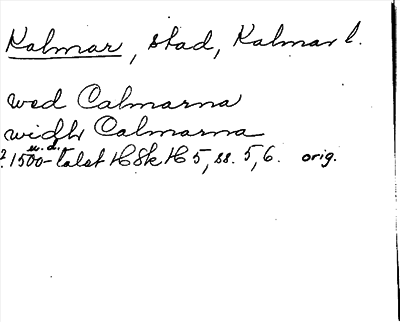 Kalmar, stad, Kalmar l.
wed Calmarna
widh Calmarna
u.d.
? 1500-talet HSk H 5, ss. 5, 6. orig.